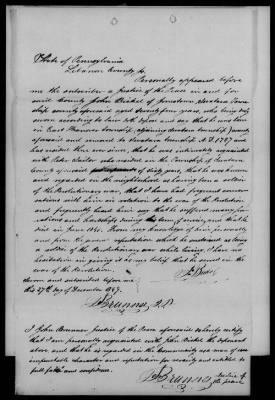 State of Pennsylvania
Lebanon County ss.
Personally appeared before
me the subscriber a Justice of the Peace in and for
said County John Bickel of Jonestown, Swatara Town-
ship county aforesaid aged Seventy four years, who being duly
sworn according to law doth depose and say that he was born
in East Hanover township, adjoining Swatara township County
aforesaid and removed to Swatara township A.D. 1787 and
has resided there ever since, that he was intimately acquainted
with Peter who resided in the Township of Swatara
County aforesaid of sixty years, that he was known
and reputed in the neighborhood as having been a soldier
of the Revolutionary war, that I have had frequent conver-
sations with him in relation to the war of the Revolution
and frequently heard him say that he suffered many pri-
vations and hardships during the term of service, and that he
died in June 1840. From my knowledge of him personally
and from the general reputation which he sustained as being
a soldier of the Revolutionary war while living, I have no
hesitation in giving it as my belief that he served in the
war of the Revolution.
Sworn and subscribed before me
this 27th day of December 1857.
J Brunner, J.P.
I John Brunner Justice of the Peace aforesaid do hereby certify
that I am personally acquainted with John Bickel the deponent
above and that he is regarded in the community as a man of un-
impeachable character and reputation for veracity and entitled to
full faith and confidence.
J Brunner Justice of
the peace